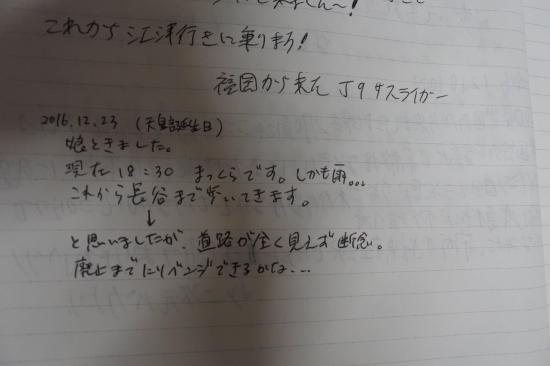 これから江津行きに乗りまう!
福岡から来た J94スライガー
2016.12.23 (天皇誕生日)
娘ときました。
現在18:30 まっくらです。しかも雨。。。
これから長谷まで歩いてきます。
↓
と思いましたが、道路が全く見えず断念。
廃止までにリベンジできるかな...